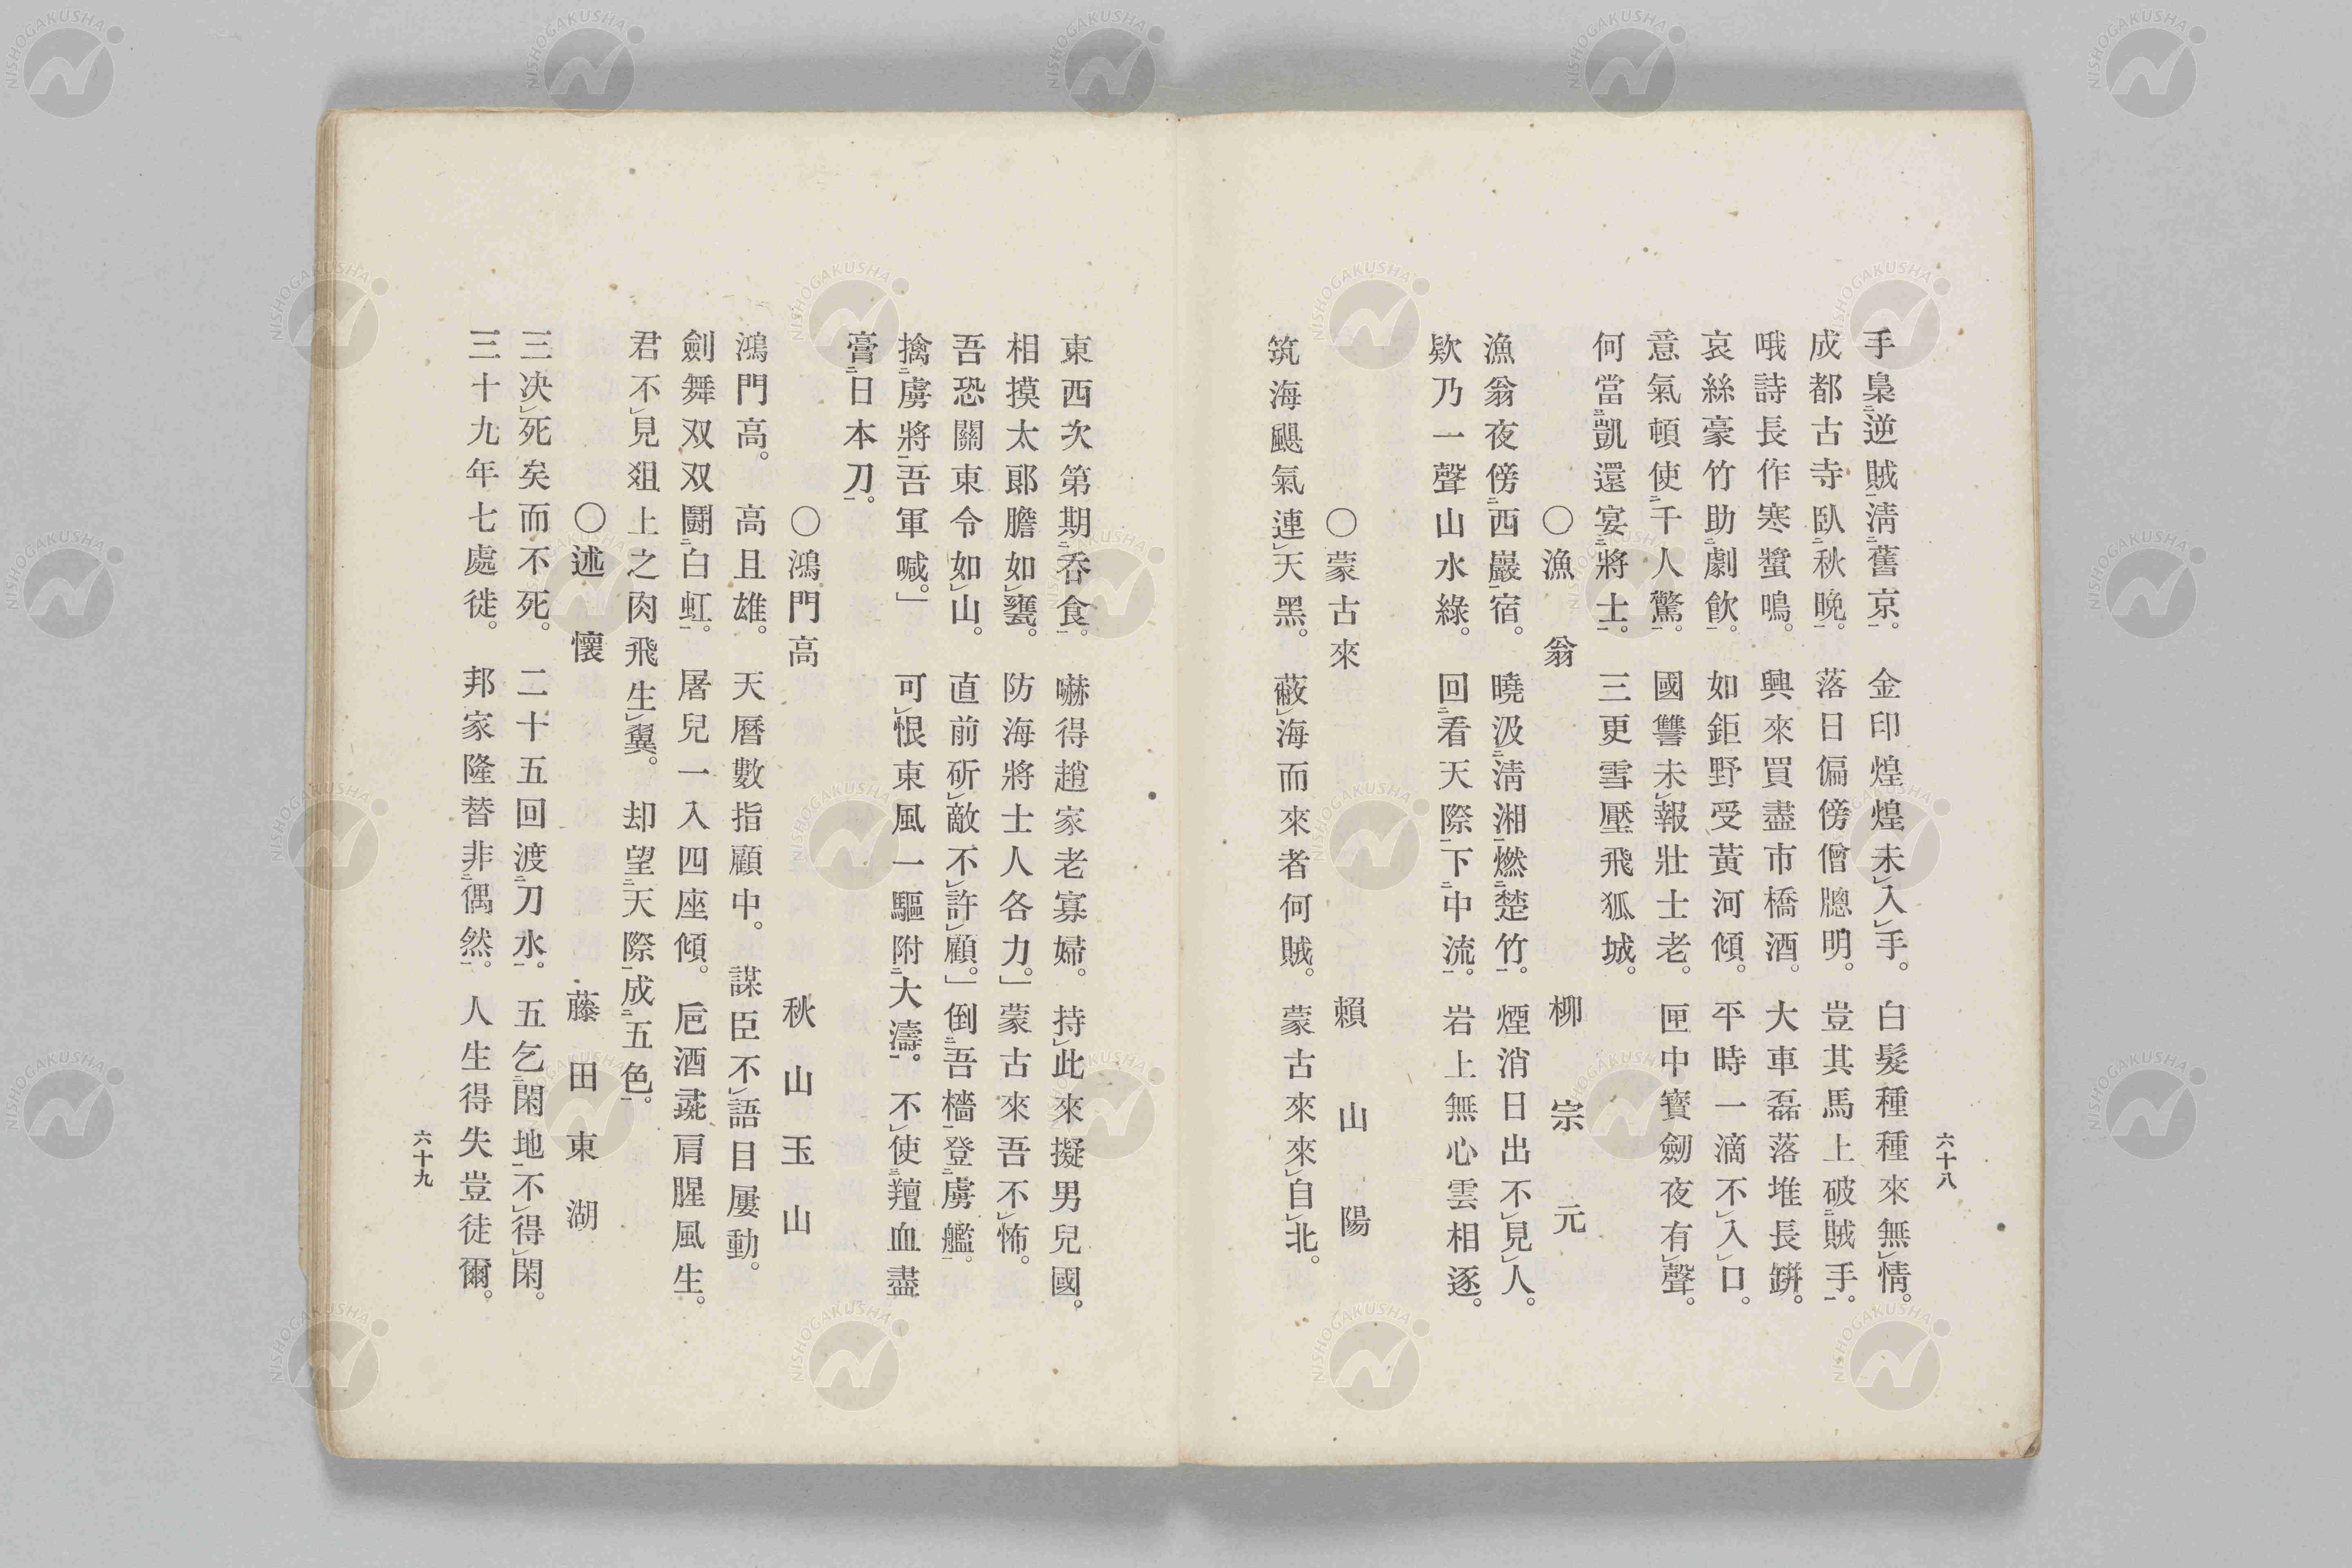 六十八
手梟㆓逆賊㆒淸㆓舊京㆒。　金印煌煌未㆑入㆑手。　白髮種種來無㆑情。
成都古寺臥㆓秋晩㆒。　落日偏傍僧牕明。　豈其馬上破㆓賊手㆒。
哦詩長作寒螿鳴。　興來買盡市橋酒。　大車磊落堆長缾。
哀絲豪竹助㆓劇飮㆒。　如鉅野受黃河傾。　平時一滴不㆑入㆑口。
意氣頓使㆓千人驚㆒。　國讐未㆑報壯士老。　匣中寶劒夜有㆑聲。
何當㆘凱還宴㆓將士㆒。　三更雪壓飛狐城。
○漁　翁　　　柳宗元
漁翁夜傍㆓西巖㆒宿。　曉汲㆓淸湘㆒燃㆓楚竹㆒。　煙消日出不㆑見㆑人。
欵乃一聲山水綠。　回㆓看天際㆒下㆓中流㆒。　岩上無心雲相逐。
○蒙古來　　　賴山陽
筑海颶氣連㆑天黑。　蔽㆑海而來者何賊。　蒙古來來㆑自㆑北。
東西次第期㆓吞食㆒。　嚇得趙家老寡婦。　持㆑此來擬男兒國。
相摸太郞膽如㆑甕。　防海將士人各力。」蒙古來吾不㆑怖。
吾恐關東令如㆑山。　直前斫㆑敵不㆑許㆑顧。」倒㆓吾檣㆒登㆓虜艦㆒。
擒㆓虜將㆒吾軍喊。」　可㆑恨東風一驅附㆓大濤㆒。　不㆑使㆘羶血盡
膏㆓日本刀㆒。
○鴻門高　　　秋山玉山
鴻門高。　高且雄。　天曆數指顧中。　謀臣不㆑語目屢動。
劍舞双双鬪㆓白虹㆒。　屠兒一入四座傾。　巵酒彘肩腥風生。
君不㆑見爼上之肉飛生㆑翼。　却望㆓天際㆒成㆓五色㆒。
○述　懷　　　藤田東湖
三决㆑死矣而不死。　二十五回渡㆓刀水㆒。　五乞㆓閑地㆒不㆑得㆑閑。
三十九年七處徙。　邦家隆替非㆓偶然㆒。　人生得失豈徒爾。
六十九
NISHOGAKUSHA